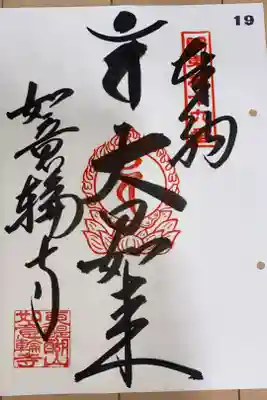 19
奉納
大日如来
如意輪寺
如意輪寺